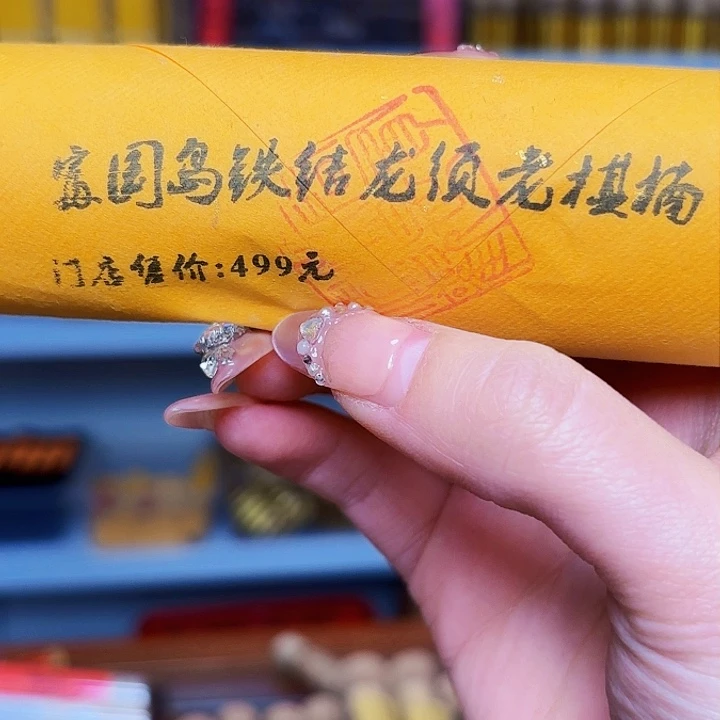 富国乌铁结龙须老棋楠
门店售价:499元